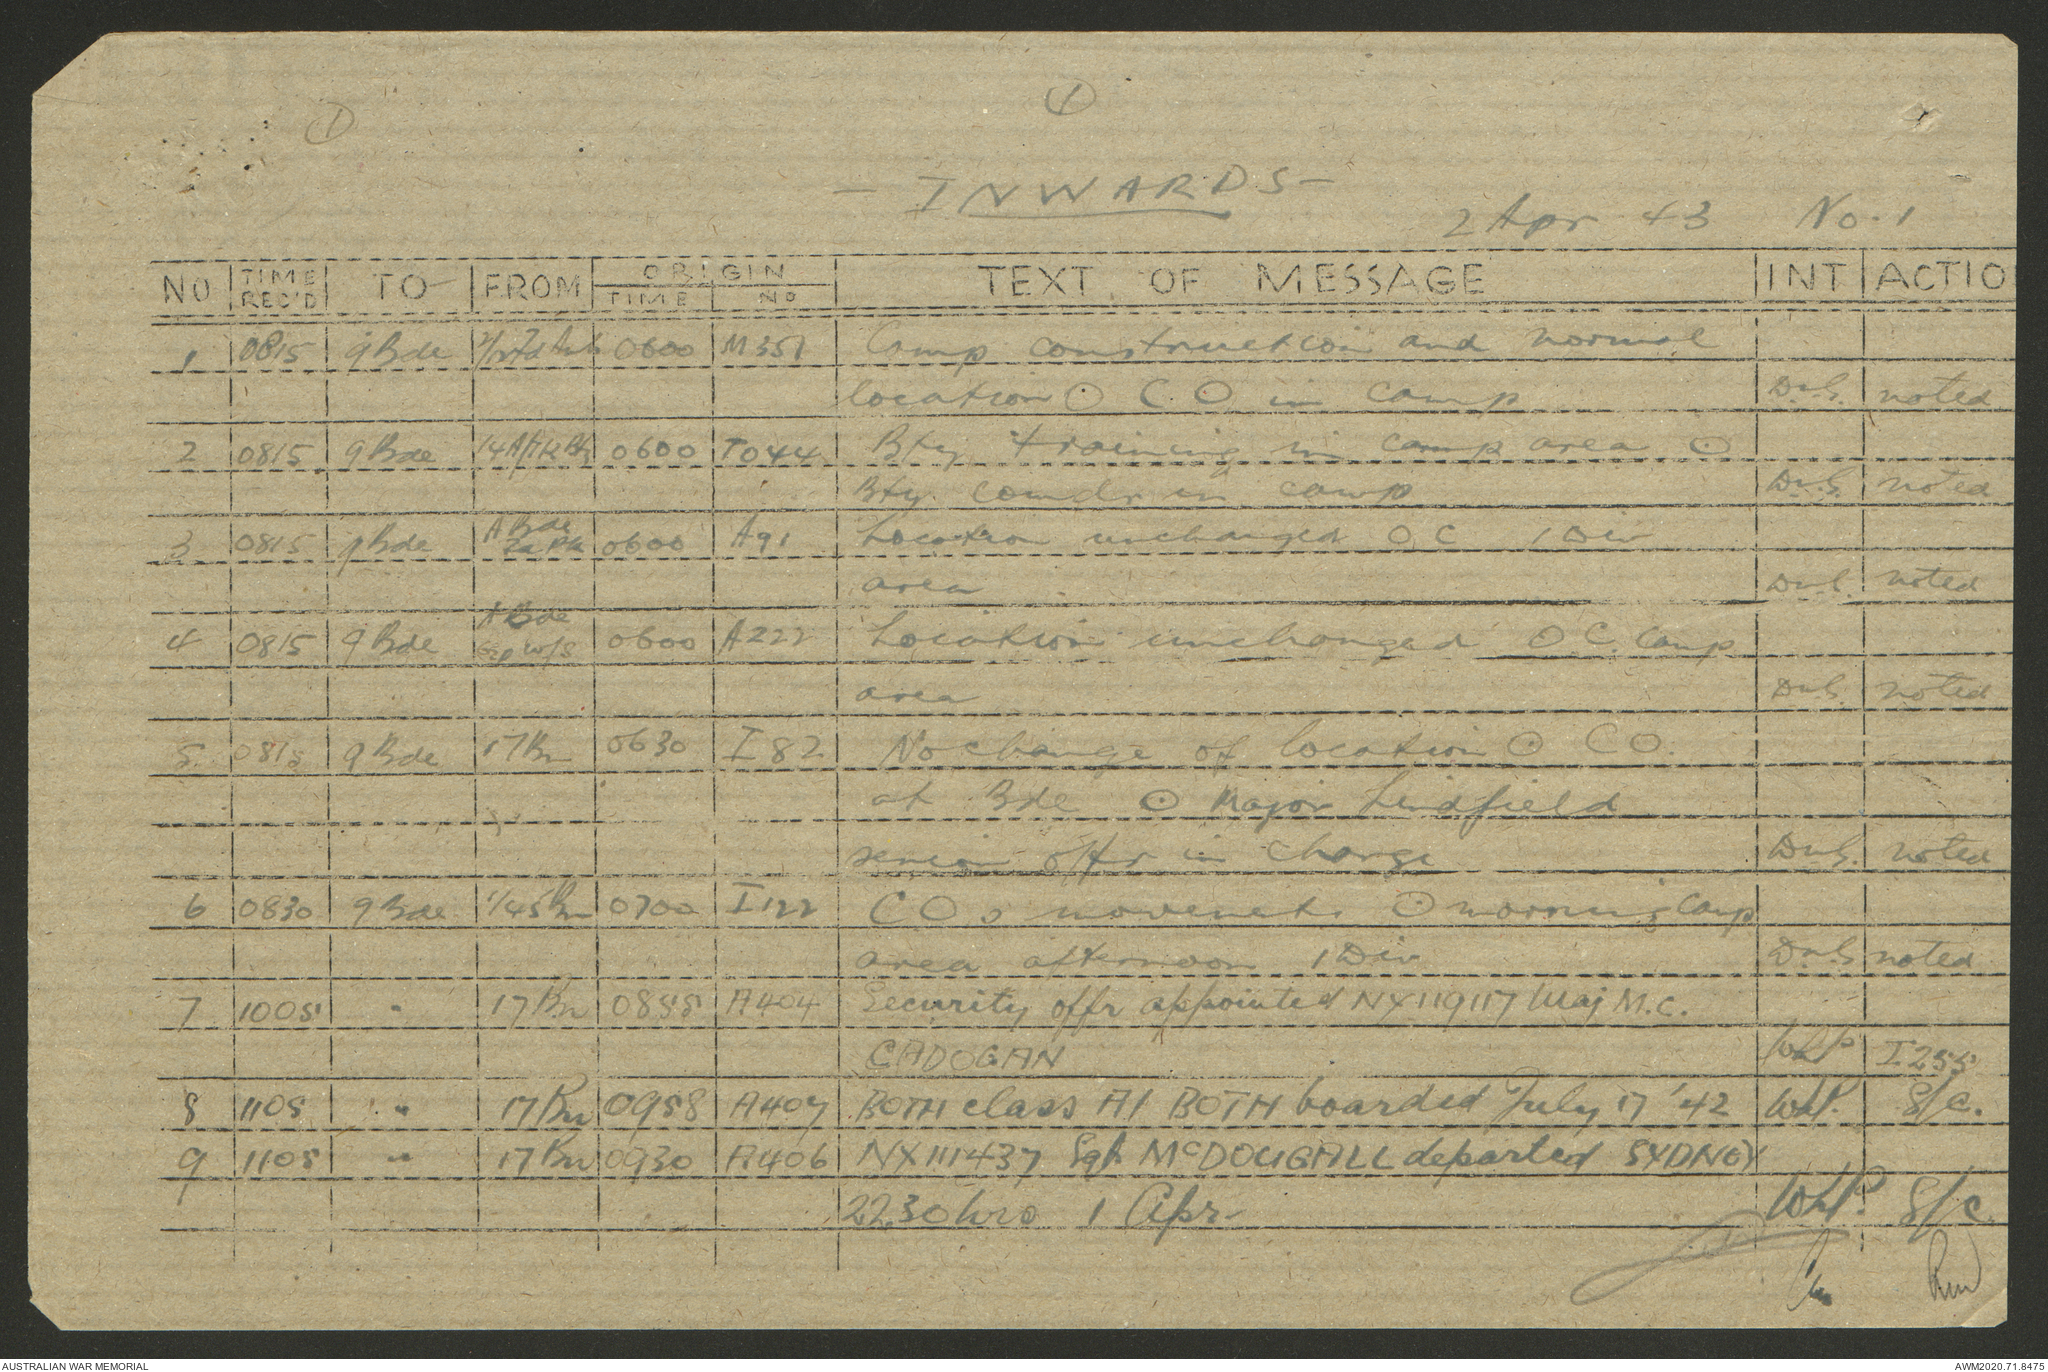 1
1
- INWARDS -
2 Apr 43 No. 1
NO TIME REC'D TO FROM ORIGIN TIME NO TEXT OF MESSAGE INT ACTIO
1 0815 9 Bde 0600 M351 Camp construction and normal
location ⊙ C.O. in camp D.W.S. noted
2 0815 9 Bde 14 A/Tk Bty 0600 TO44 Bty training in camp area ⊙
Bty comdr in camp D.W.S. noted
3 0815 9 Bde A Bde 0600 A91 Location unchanged OC 1 Div
area D.W.S. noted
4 0815 9 Bde A Bde Gp W/S 0600 A222 Location unchanged O.C. Camp
area D.W.S. noted
5 0815 9 Bde 17 Bn 0630 I82 No change of location ⊙ CO.
at Bde ⊙ Major Lindfield
senior offr in charge D.W.S. noted
6 0830 9 Bde 1/45 Bn 0700 I122 COs movements ⊙ morning camp
area afternoon 1 Div D.W.S noted
7 1005 " 17 Bn 0855 A404 Security offr appointed NX119117 Maj M.C.
CADOGAN I255
8 1105 " 17 Bn 0958 A407 BOTH class A1 BOTH boarded July 17 '42 S/C.
9 1105 " 17 Bn 0930 A406 NX111437 Sgt McDOUGALL departed SYDNEY
2230 hrs 1 Apr S/C.
AUSTRALIAN WAR MEMORIAL AWM2020.71.8475